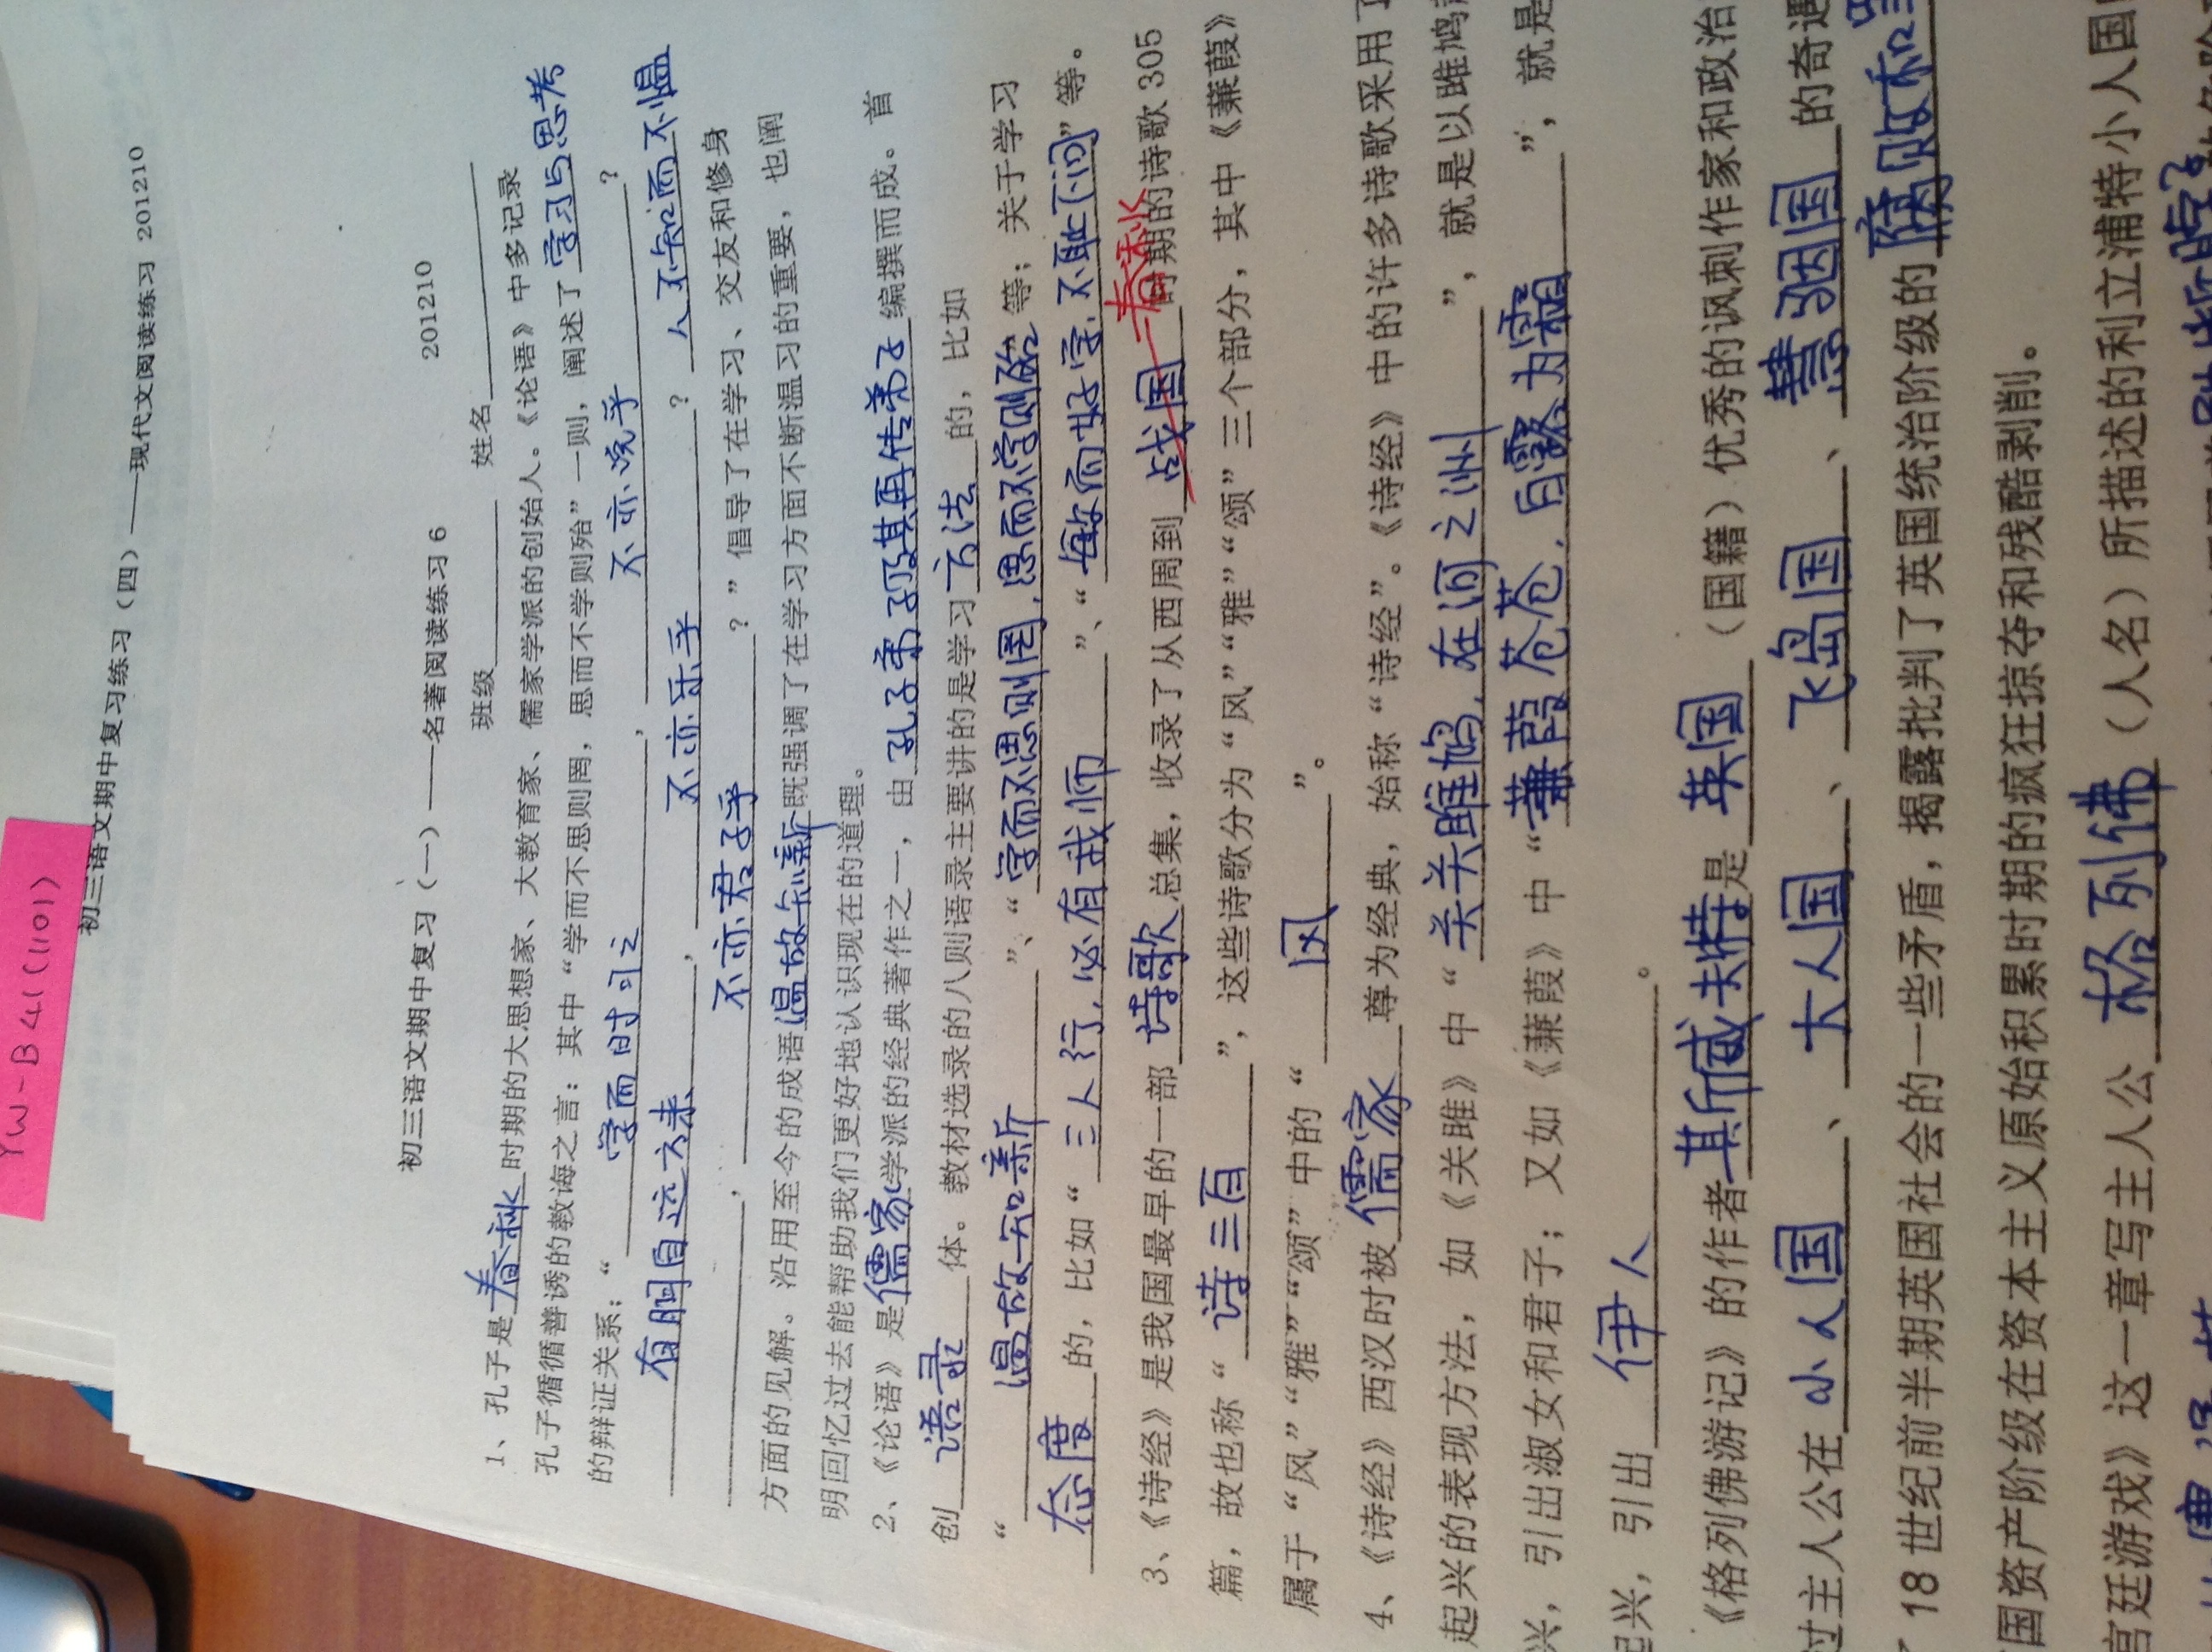 YW-B41(1101)
初三语文期中复习练习（四）——现代文阅读练习 201210
初三语文期中复习（一）——名著阅读练习 6 201210
班级 姓名
1、孔子是春秋时期的大思想家、大教育家、儒家学派的创始人。《论语》中多记录
孔子循循善诱的教诲之言：其中“学而不思则罔，思而不学则殆”一则，阐述了学习与思考
的辩证关系；“学而时习之，不亦说乎？
有朋自远方来，不亦乐乎？人不知而不愠
，不亦君子乎？”倡导了在学习、交友和修身
方面的见解。沿用至今的成语温故知新既强调了在学习方面不断温习的重要，也阐
明回忆过去能帮助我们更好地认识现在的道理。
2、《论语》是儒家学派的经典著作之一，由孔子弟子及其再传弟子编撰而成。首
创语录体。教材选录的八则语录主要讲的是学习方法的，比如
“温故知新”、“学而不思则罔，思而不学则殆等；关于学习
态度的，比如“三人行，必有我师”、“敏而好学，不耻下问”等。
3、《诗经》是我国最早的一部诗歌总集，收录了从西周到战国春秋时期的诗歌 305
篇，故也称“诗三百”，这些诗歌分为“风”“雅”“颂”三个部分，其中《蒹葭》
属于“风”“雅”“颂”中的“风”。
4、《诗经》西汉时被儒家尊为经典，始称“诗经”。《诗经》中的许多诗歌采用了
起兴的表现方法，如《关雎》中“关关雎鸠，在河之洲”，就是以雎鸠
兴，引出淑女和君子；又如《蒹葭》中“蒹葭苍苍，白露为霜”，就是
起兴，引出伊人。
《格列佛游记》的作者斯威夫特是英国（国籍）优秀的讽刺作家和政治
过主人公在小人国、大人国、飞岛国、慧骃国的奇遇
了 18 世纪前半期英国社会的一些矛盾，揭露批判了英国统治阶级的腐败和
国资产阶级在资本主义原始积累时期的疯狂掠夺和残酷剥削。
宫廷游戏》这一章写主人公格列佛（人名）所描述的利立浦特小人国